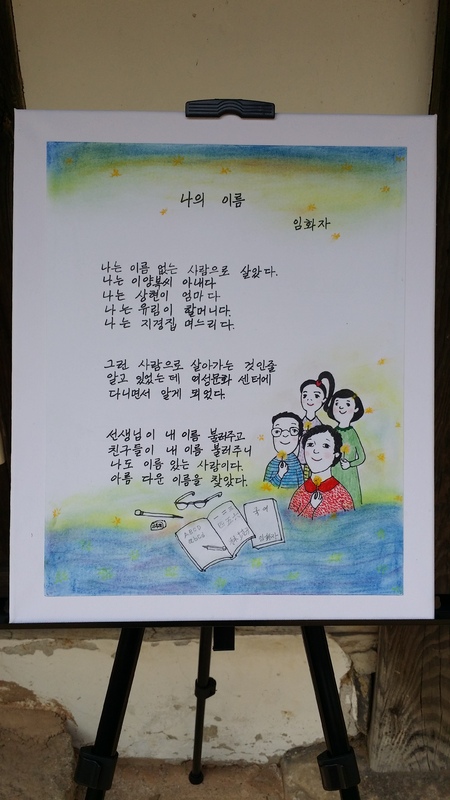 나의 이름
임화자
나는 이름 없는 사람으로 살았다.
나는 이양복씨 아내다
나는 상현이 엄마다
나는 유림이 할머니다.
나는 지경집 며느리다.
그런 사람으로 살아가는 것인줄
알고 있었는데 여성문화 센터에
다니면서 알게 뫼었다.
선생님이 내 이름 불러주고
친구들이 내 이름 불러주니
나도 이름 있는 사람이다.
아름 다운 이름을 찾았다.
ABCD
국어